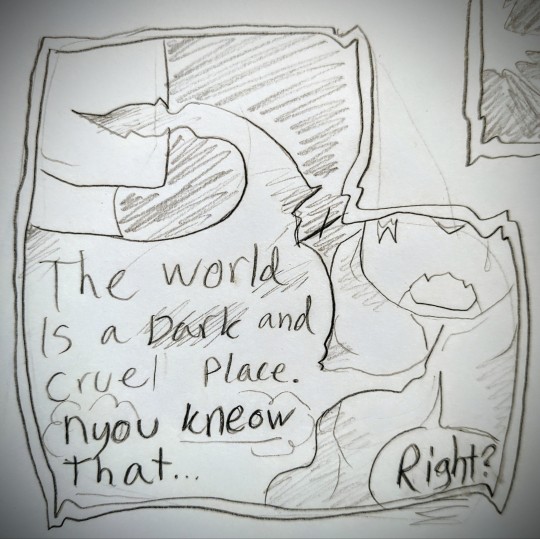 The world
Is a Dark and
cruel Place.
nyou kneow
That...
Right?